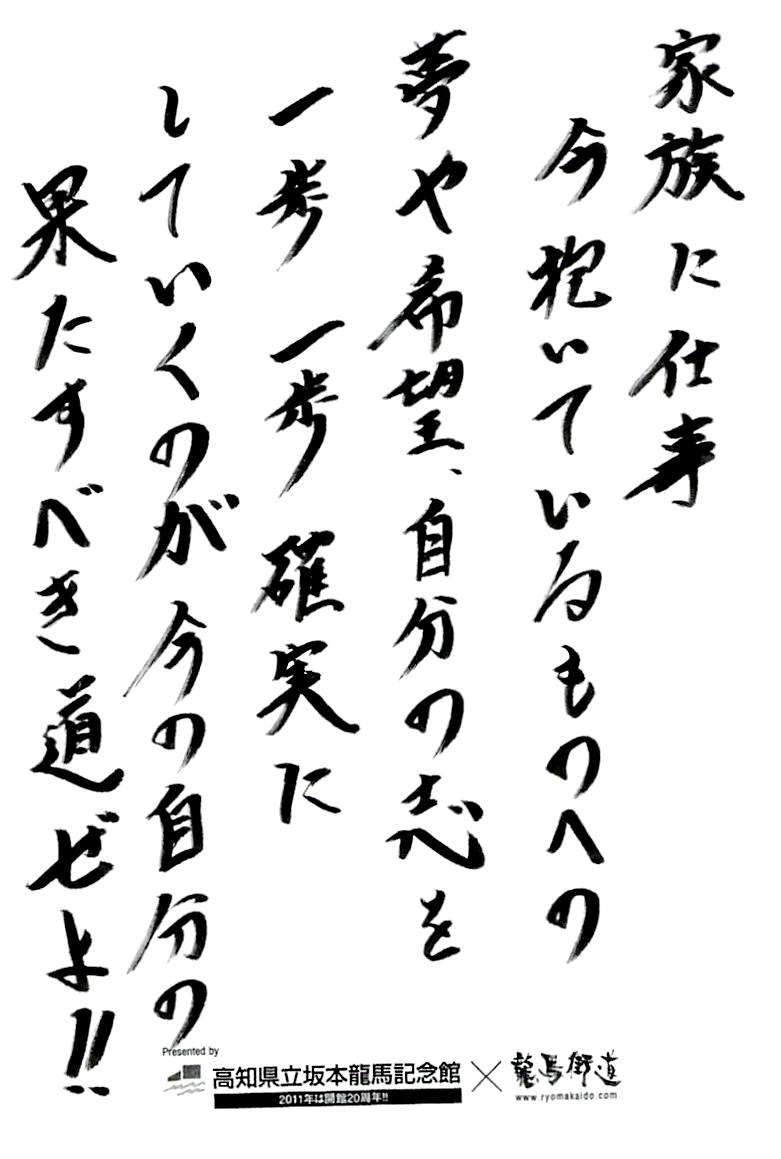 家族に仕事
今抱いているものへの
夢や希望、自分の志を
一歩 一歩 確実に
していくのが今の自分の
果たすべき道ぜよ!!
Presented by
高知県立坂本龍馬記念館
2011年は開館20周年!!
龍馬街道
www.ryomakaido.com